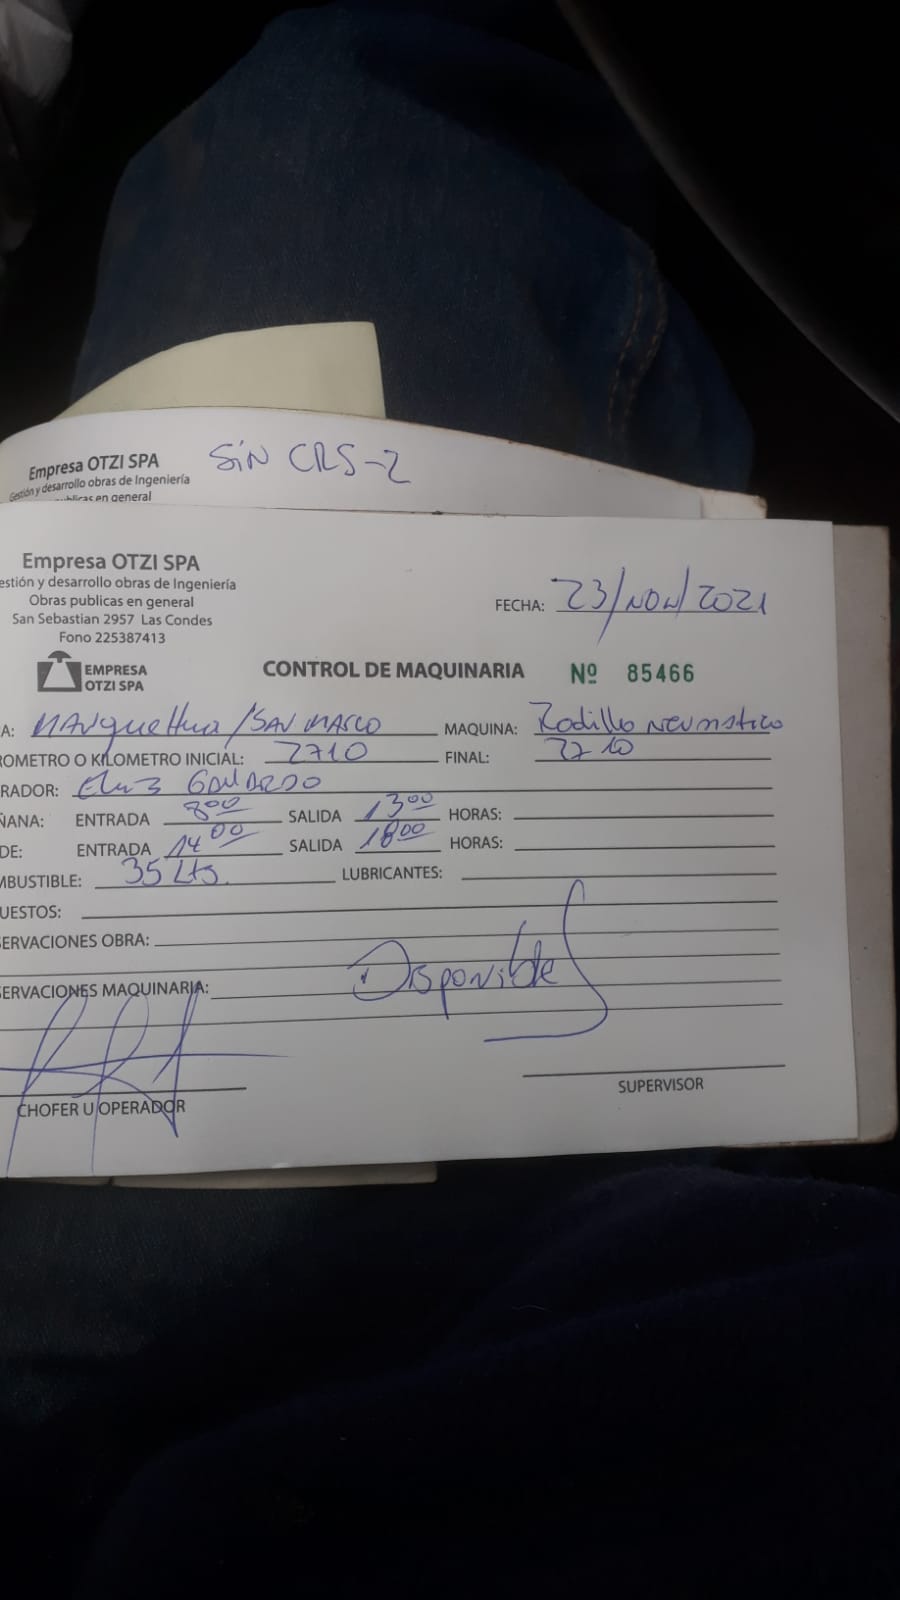 Empresa OTZI SPA SiN CRS-2
Gestión y desarrollo obras de Ingeniería
blicas en general
Empresa OTZI SPA
estión y desarrollo obras de Ingeniería
Obras publicas en general
San Sebastian 2957 Las Condes
Fono 225387413
FECHA: 23/NOV/2021
EMPRESA
OTZI SPA
CONTROL DE MAQUINARIA Nº 85466
A: /SAN MARCO MAQUINA: Rodillo NEUMATICO
ROMETRO O KILOMETRO INICIAL: 2710 FINAL: 2710
RADOR:
ÑANA: ENTRADA 800 SALIDA 1300 HORAS:
DE: ENTRADA 1400 SALIDA 1800 HORAS:
MBUSTIBLE: 35 Lts. LUBRICANTES:
UESTOS:
SERVACIONES OBRA:
SERVACIONES MAQUINARIA: Disponible
CHOFER U OPERADOR
SUPERVISOR